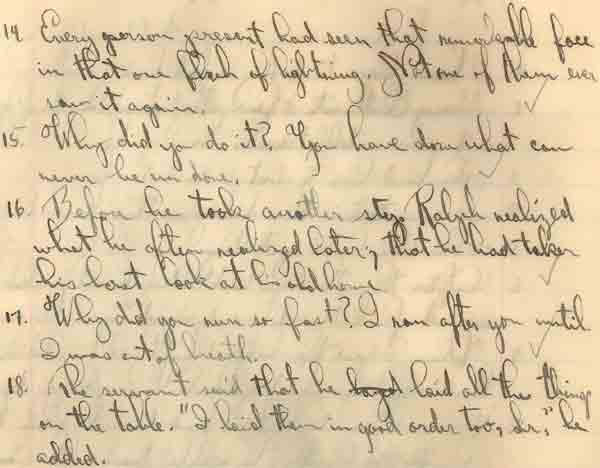 14. Every person present had seen that remarkable face
in that one flash of lightning. Not one of them ever
saw it again.
15. Why did you do it? You have done what can
never be undone.
16. Before he took another step Ralph realized
what he often realized later, that he had taken
his last look at his old home
17. Why did you run so fast? I ran after you until
I was out of breath.
18. The servant said that he laid all the things
on the table. "I laid them in good order too, sir," he
added.